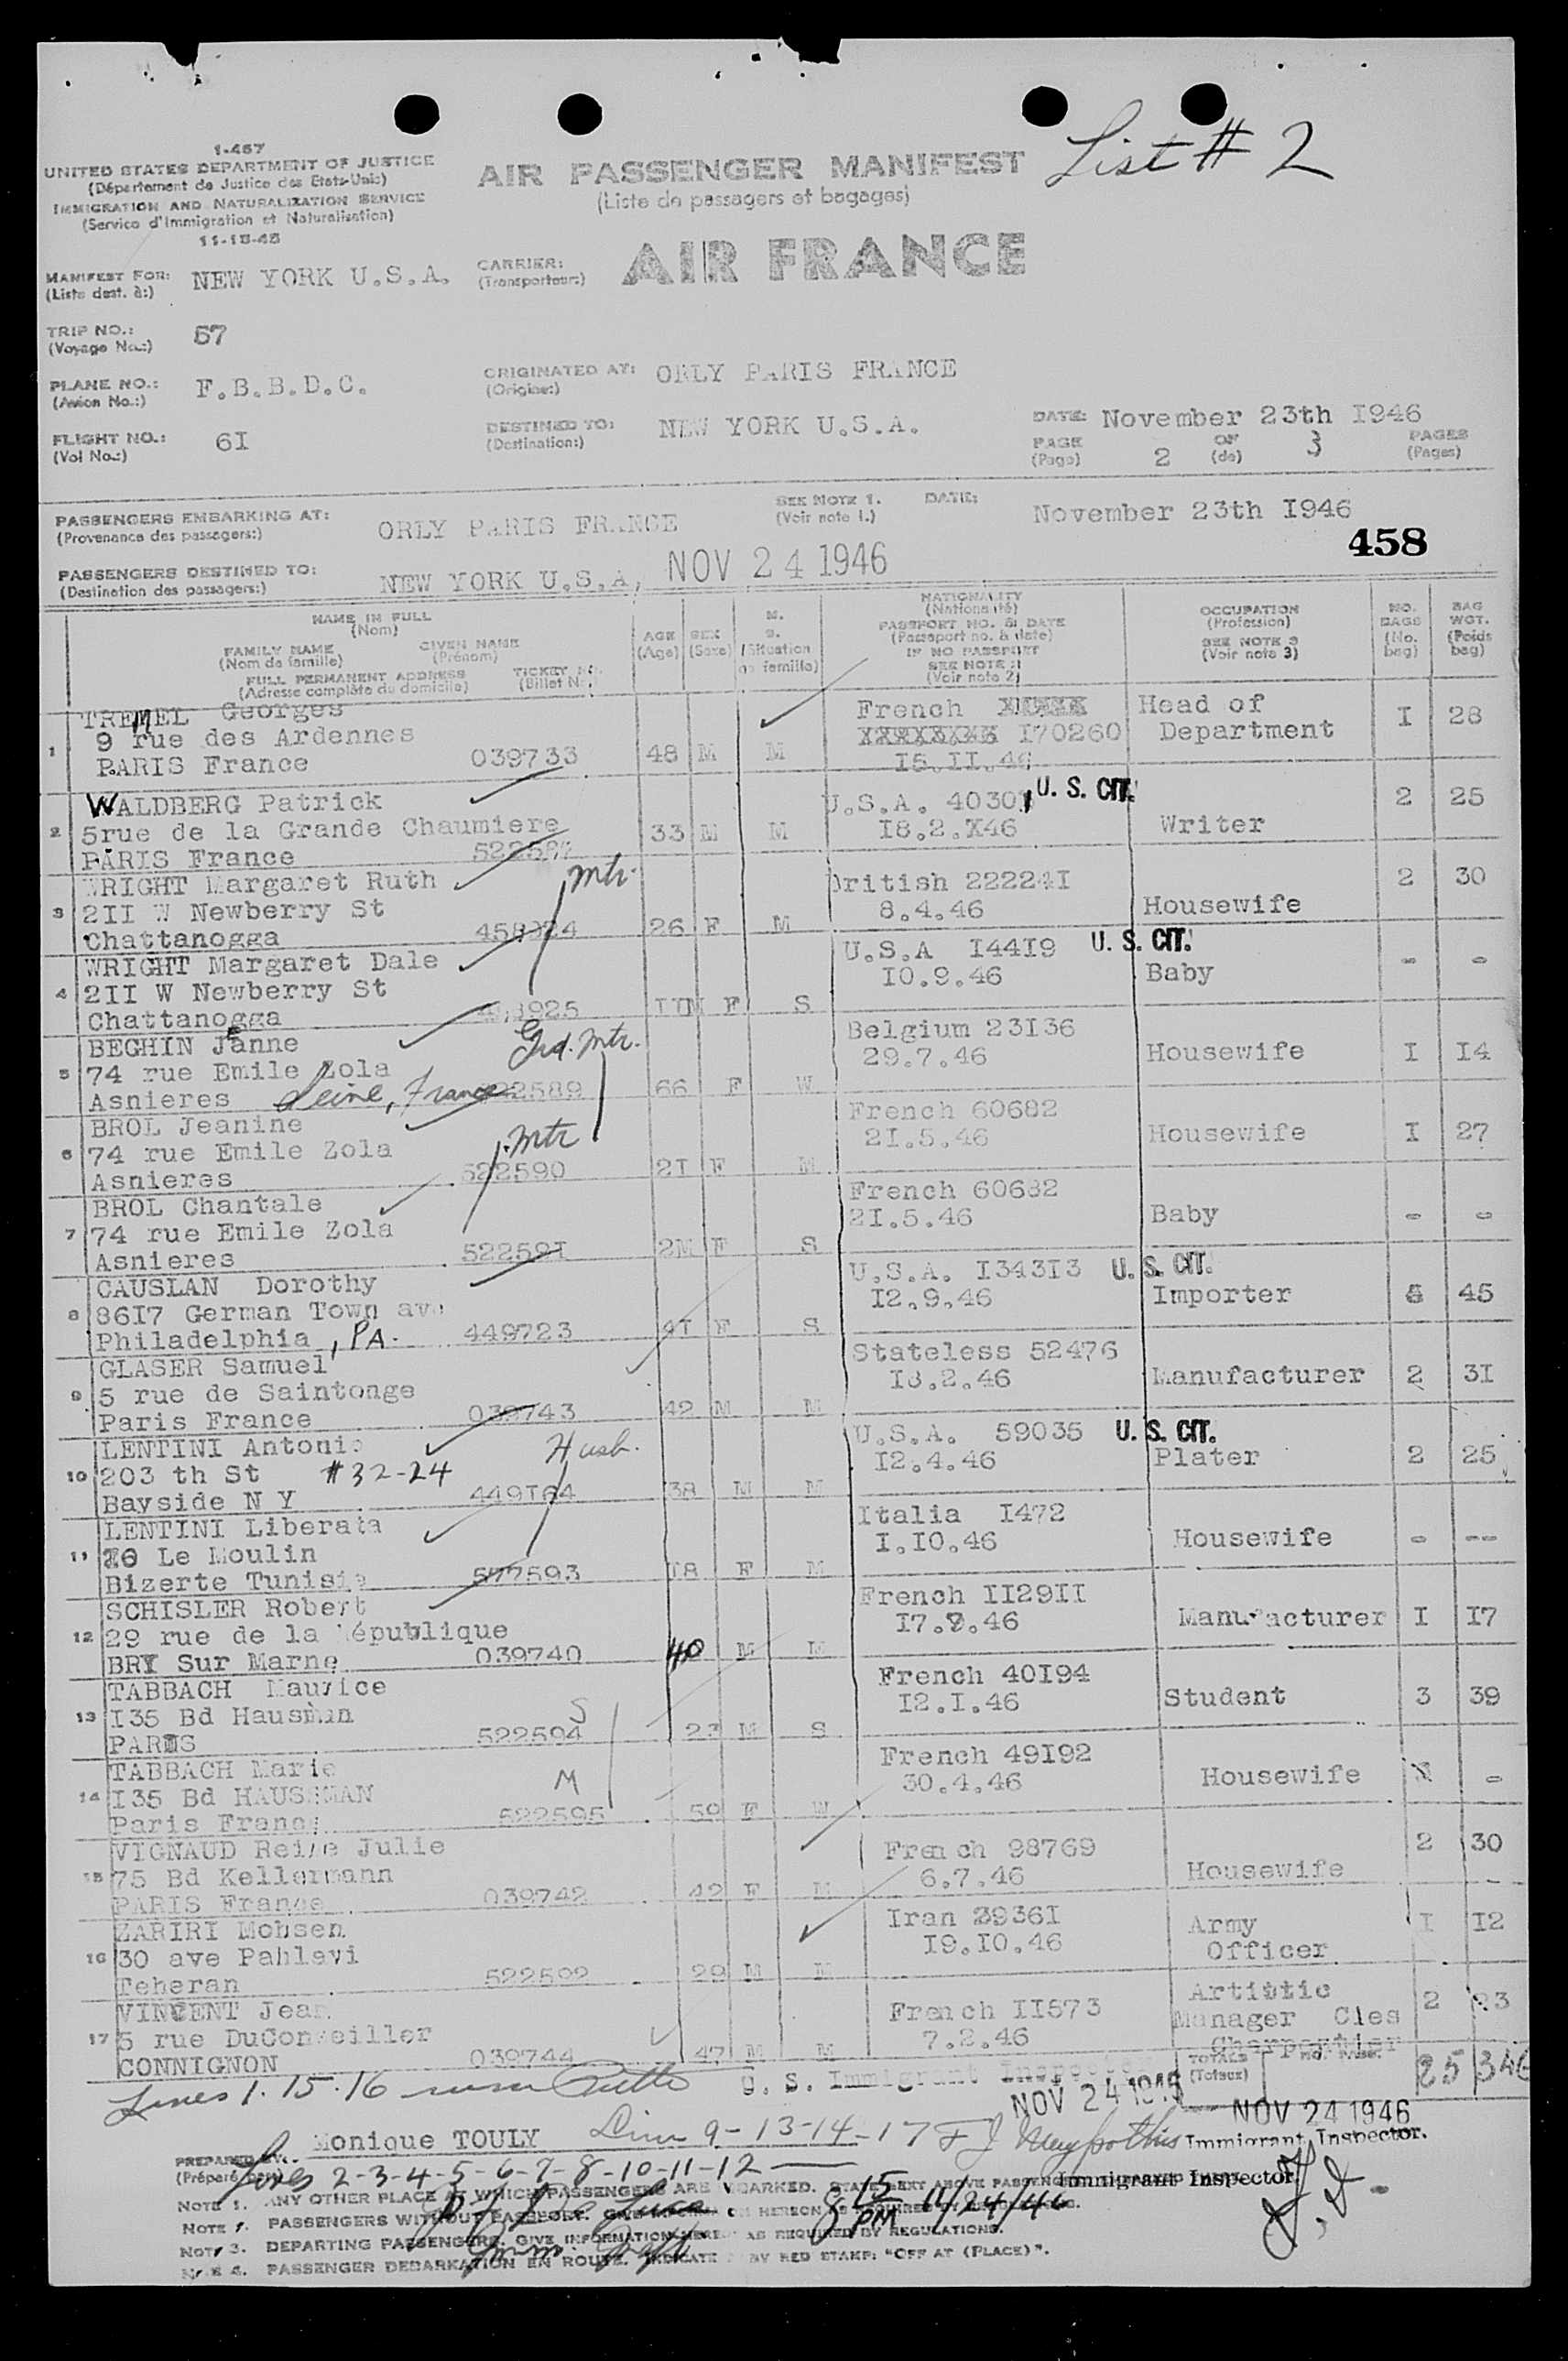 List # 2
1-457
UNITED STATES DEPARTMENT OF JUSTICE
(Département de Justice des Etats-Unis)
IMMIGRATION AND NATURALIZATION SERVICE
(Service d'Immigration et Naturalisation)
11-15-45
AIR PASSENGER MANIFEST
(Liste de passagers et bagages)
MANIFEST FOR: NEW YORK U.S.A.
(Liste dest. à:)
CARRIER: AIR FRANCE
(Transporteur:)
TRIP NO.: 57
(Voyage No.:)
PLANE NO.: F.B.B.D.C.
(Avion No.:)
ORIGINATED AT: ORLY PARIS FRANCE
(Origine:)
FLIGHT NO.: 6I
(Vol No.:)
DESTINED TO: NEW YORK U.S.A.
(Destination:)
DATE: November 23th I946
PAGE 2 OF 3 PAGES
(Page) (de) (Pages)
PASSENGERS EMBARKING AT: ORLY PARIS FRANCE
(Provenance des passagers:)
SEE NOTE 1. DATE: November 23th I946
(Voir note 1.)
458
PASSENGERS DESTINED TO: NEW YORK U.S.A, NOV 24 1946
(Destination des passagers:)
NAME IN FULL
(Nom)
FAMILY NAME GIVEN NAME
(Nom de famille) (Prénom)
FULL PERMANENT ADDRESS TICKET NO.
(Adresse complète du domicile) (Billet No.)
AGE
(Age)
SEX
(Sexe)
M.
S.
(Situation de famille)
NATIONALITY
(Nationalité)
PASSPORT NO. & DATE
(Passeport no. & date)
IF NO PASSPORT
SEE NOTE 2
(Voir note 2)
OCCUPATION
(Profession)
SEE NOTE 3
(Voir note 3)
NO. BAGS
(No. bag)
BAG WGT.
(Poids bag)
TREMEL Georges French Head of I 28
1 9 rue des Ardennes I70260 Department
PARIS France 039733 48 M M I5.II.46
WALDBERG Patrick U.S.A. U. S. CIT. 2 25
2 5rue de la Grande Chaumiere 33 M M I8.2.X46 Writer
PARIS France
WRIGHT Margaret Ruth mtr. British 22224I 2 30
3 2II W Newberry St 8.4.46 Housewife
Chattanogga 26 F M
WRIGHT Margaret Dale U.S.A I44I9 U. S. CIT. - -
4 2II W Newberry St I0.9.46 Baby
Chattanogga F S
BEGHIN Jeanne Grd. mtr. Belgium 23I36
5 74 rue Emile Zola 29.7.46 Housewife I I4
Asnieres Seine, France 522589 66 F W
BROL Jeanine mtr French 60682
6 74 rue Emile Zola 2I.5.46 Housewife I 27
Asnieres 522590 2I F M
BROL Chantale French 60682
7 74 rue Emile Zola 2I.5.46 Baby - -
Asnieres 52259I 2M F S
CAUSLAN Dorothy U.S.A. I343I3 U. S. CIT.
8 86I7 German Town ave I2.9.46 Importer 45
Philadelphia, PA. 449723 4I F S
GLASER Samuel Stateless 52476
9 5 rue de Saintonge I8.2.46 Manufacturer 2 3I
Paris France 039743 42 M M
LENTINI Antonio Husb. U.S.A. 59035 U. S. CIT.
10 203 th St #32-24 I2.4.46 Plater 2 25
Bayside N Y 449I64 38 M M
LENTINI Liberata Italia I472
11 Le Moulin I.I0.46 Housewife - --
Bizerte Tunisie I8 F M
SCHISLER Robert French II29II
12 29 rue de la République Manufacturer I I7
BRY Sur Marne 039740 40 M M
TABBACH Maurice French 40I94
13 I35 Bd Hausman S I2.I.46 Student 3 39
PARIS 522594 23 M S
TABBACH Marie French 49I92
14 I35 Bd HAUSSMAN M 30.4.46 Housewife -
Paris France 522595 59 F W
VIGNAUD Reine Julie French 98769 2 30
15 75 Bd Kellermann 6.7.46 Housewife
PARIS France 039742 42 F M
ZARIRI Mohsen Iran 3936I Army I I2
16 30 ave Pahlevi I9.I0.46 Officer
Teheran 522592 29 M M
VINCENT Jean French II573 Artistic 2 23
17 5 rue DuConseiller 7.2.46 Manager Cles
CONNIGNON 039744 47 M M Charpentier
TOTALS
(Totaux)
NO. PASS.
25 346
Lines 1. 15. 16
U. S. Immigrant Inspector
NOV 24 1946
NOV 24 1946
PREPARED BY: Monique TOULY Lines 9-13-14-17
(Préparé par)
Immigrant Inspector.
Lines 2-3-4-5-6-7-8-10-11-12
Immigrant Inspector.
8 15 PM 11/24/46
J. D.
NOTE 1. ANY OTHER PLACE AT WHICH PASSENGERS ARE EMBARKED. STATEMENT ABOVE
PASSENGERS WITHOUT PASSPORT. HEREON AS REQUIRED BY
NOTE 3. DEPARTING PASSENGERS. GIVE INFORMATION HEREON AS REQUIRED BY REGULATIONS.
NOTE 4. PASSENGER DEBARKATION EN ROUTE. INDICATE BY RED STAMP: "OFF AT (PLACE)".